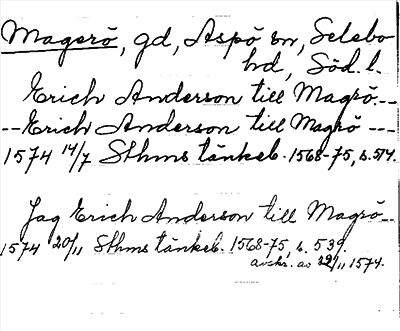 Magerö, gd, Aspö sn, Selebo
hd, Söd. l.
Erich Anderson till Magrö---
--Erich Anderson till Magrö ---
1574 14/7 Sthms tänkeb. 1568-75, s. 514.
Jag Erich Anderson till Magrö--
1574 20/11 Sthms tänkeb. 1568-75, s. 539.
avskr. av /11 1574.